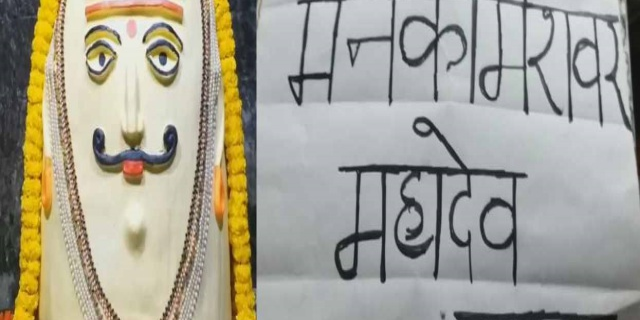 मनकामेश्वर
महादेव